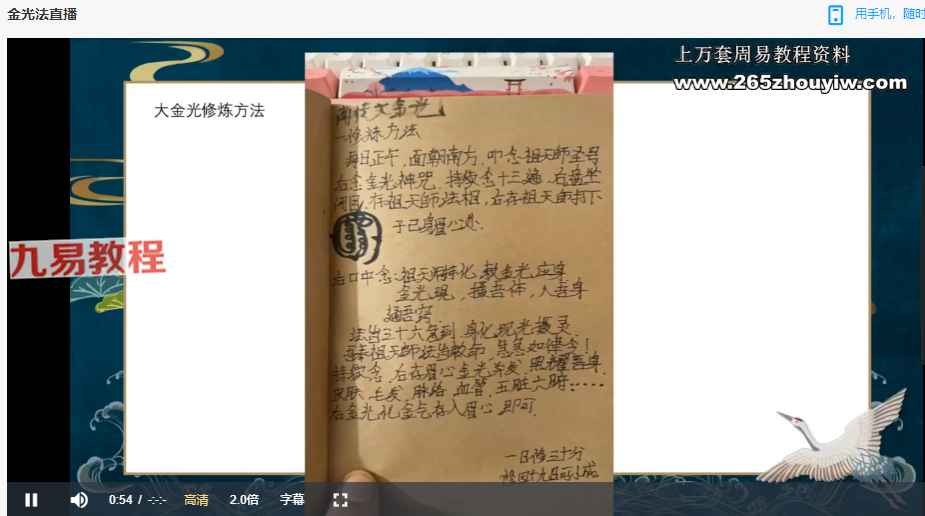 金光法直播
用手机，随时
上万套周易教程资料
www.265zhouyiw.com
大金光修炼方法
九易教程
一修炼方法
每日正午，面朝南方，叩念祖天师圣号
右念金光神咒，持续念十三遍，右盘坐
闭目，存祖天师法相，右存祖天师打下
于己身眉心处
右口中念：祖天师持化，救金光，应身
金光现，摄吾体，入吾身
通吾窍
法台三十六宫到，身化现光摄灵
吾奉祖天师法旨敕命，急急如律令！
持续念，右存眉心金光并发，照耀吾身
皮肤，毛发，脉络，血管，五脏六腑……
右金光化金气存入眉心，即可
一日修三十分
修四十九日可小成
0:54 / -:-:-
高清
2.0倍
字幕